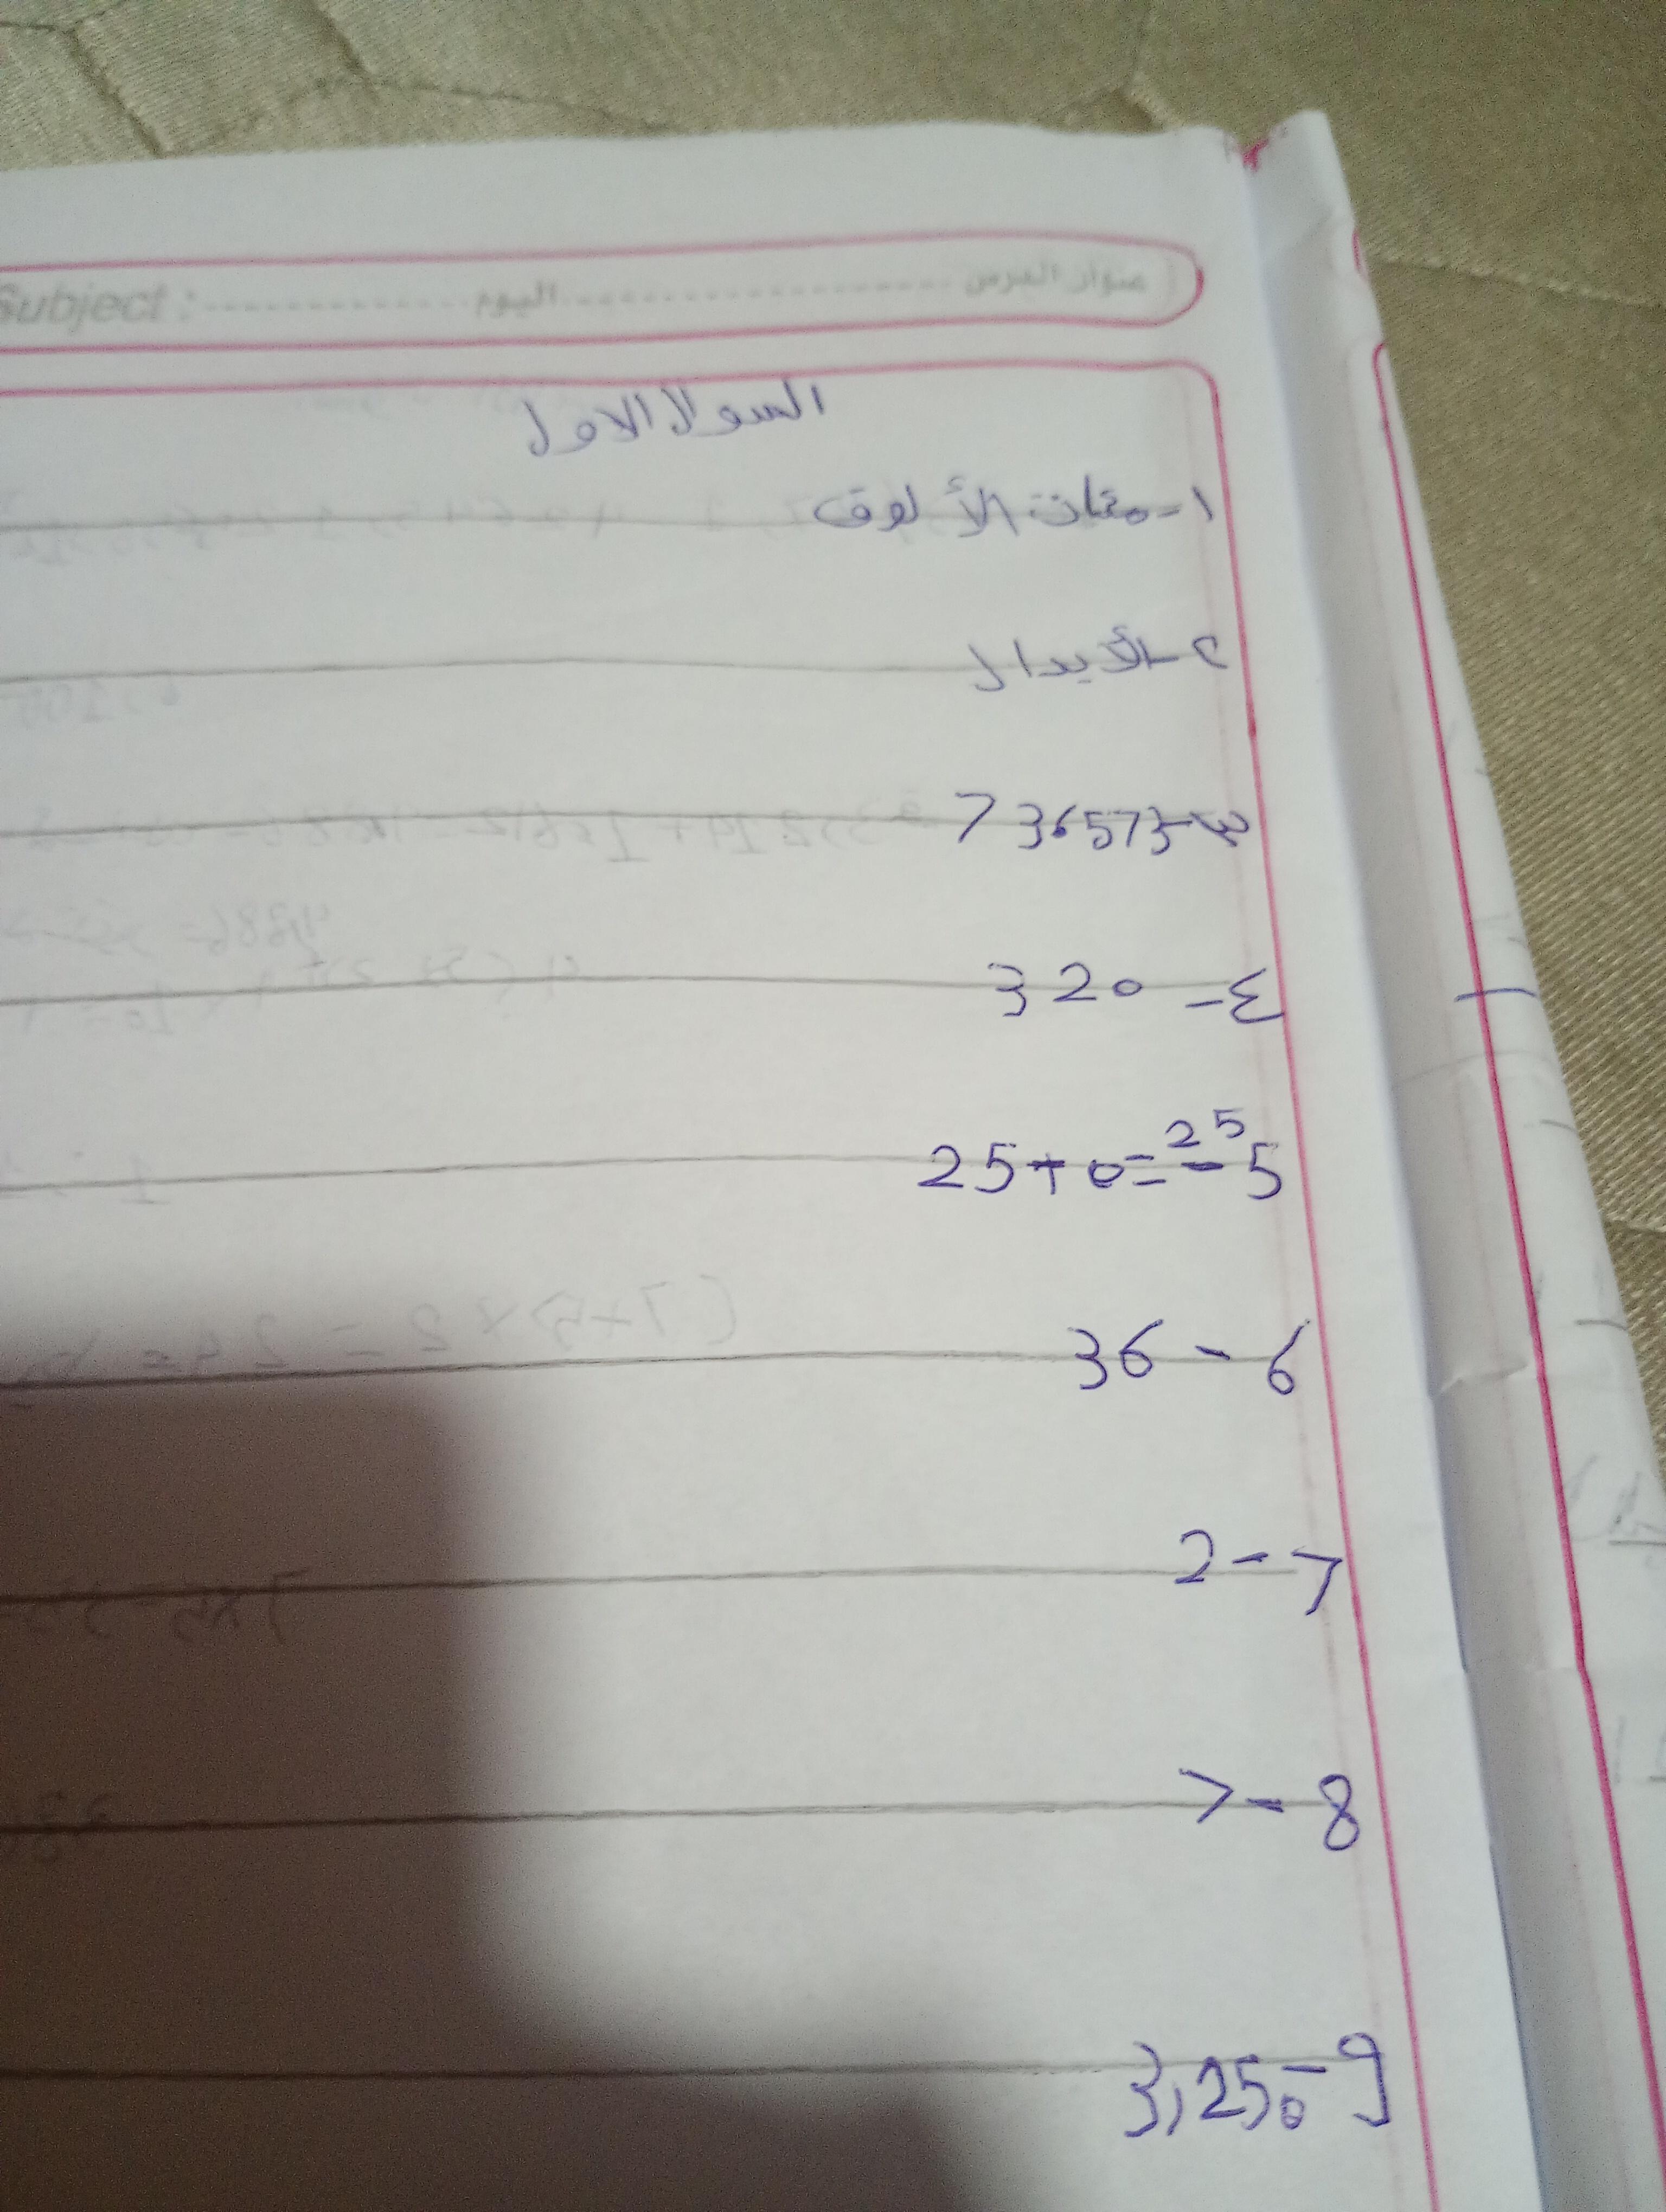 عنوان الدرس ................ اليوم ............ Subject :
السوال الاول
١- مئات الألوف
٢- الأبدال
٣- 736573
٤- 320
5- 25+0=25
6 - 36
7 - 2
8 - >
9 - 3,250